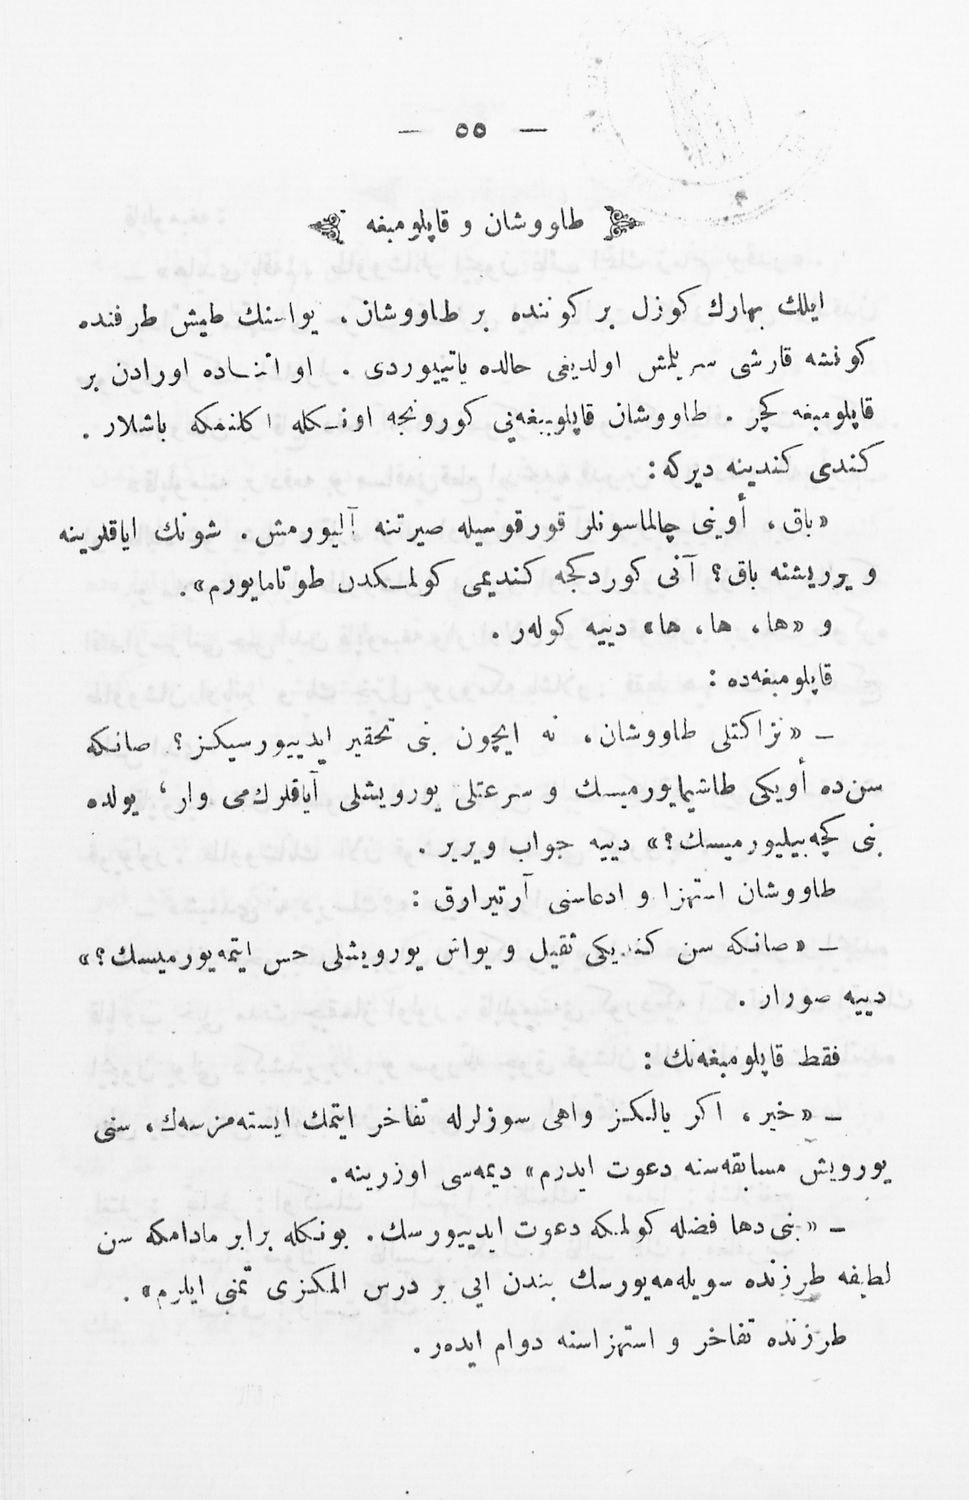 — ٥٥ —
طاووشان و قاپلومبغه
ایلك بهارك كوزل بر كوننده بر طاووشان، یواسنك طیش طرفنده
كونشه قارشی سریلمش اولدیغی حالده یاتییوردی . او اثناده اورادن بر
قاپلومبغه كچر . طاووشان قاپلومبغه‌یی كورونجه اونكله اكلنمكه باشلار .
كندی كندینه دیركه :
«باق، أوینی چالماسونلر قورقوسیله صیرتنه آلیورمش. شونك ایاقلرینه
و یوریشنه باق؟ آنی كوردكجه كندیمی كولمكدن طوتامایورم».
و «ها، ها، ها» دییه كوله‌ر .
قاپلومبغه‌ده :
– «نزاكتلی طاووشان، نه ایچون بنی تحقیر ایدییورسیكز؟ صانكه
سن‌ده أویكی طاشیمایورمیسك و سرعتلی یورویشلی آیاقلرك‌می وار، یولده
بنی كچه‌بیلیورمیسك؟» دییه جواب ویریر .
طاووشان استهزا و ادعاسنی آرتیرارق :
– «صانكه سن كندیكی ثقیل و یواش یورویشلی حس ایتمه‌یورمیسك؟»
دییه صورار .
فقط قاپلومبغه‌نك :
– «خیر، اكر یالكز واهی سوزلرله تفاخر ایتمك ایسته‌مزسه‌ك، سنی
یورویش مسابقه‌سنه دعوت ایدرم» دیمه‌سی اوزرینه.
– «بنی دها فضله كولمكه دعوت ایدییورسك. بونكله برابر مادامكه سن
لطیفه طرزنده سویله‌مه‌یورسك بندن ایی بر درس المكزی تمنی ایلرم» .
طرزنده تفاخر و استهزاسنه دوام ایده‌ر .